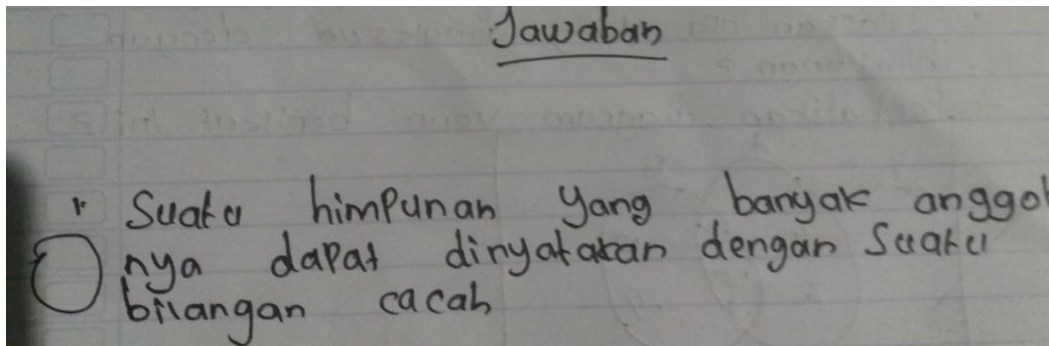 Jawaban
1. Suatu himpunan yang banyak anggot
nya dapat dinyatakan dengan Suatu
bilangan cacah